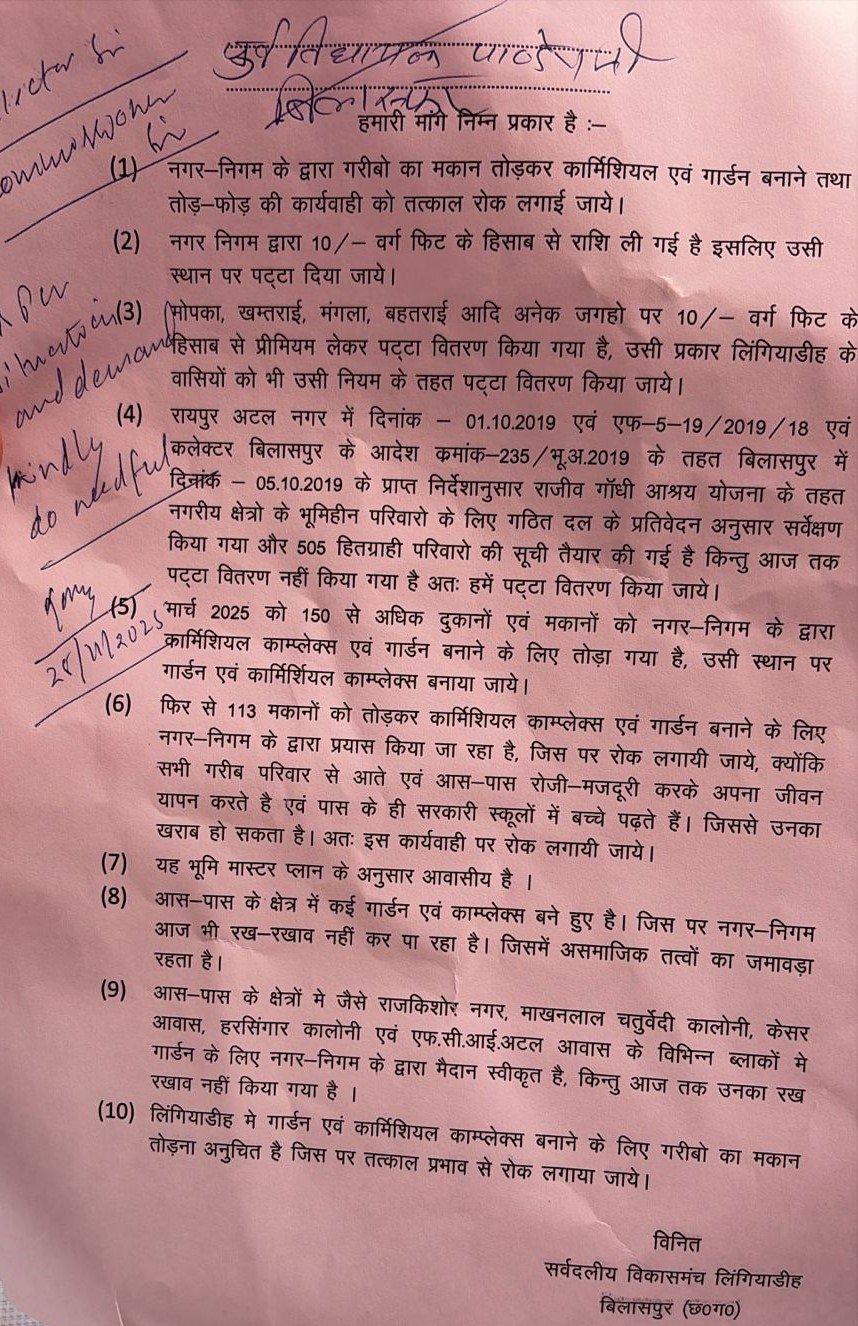 पूर्व विधायक पाण्डे जी
बिलासपुर
Sir
Sir
Per
and demand
kindly
do needful
28/11/2025
हमारी मांगे निम्न प्रकार है :–
(1) नगर–निगम के द्वारा गरीबो का मकान तोड़कर कार्मिशियल एवं गार्डन बनाने तथा
तोड़–फोड़ की कार्यवाही को तत्काल रोक लगाई जाये।
(2) नगर निगम द्वारा 10/– वर्ग फिट के हिसाब से राशि ली गई है इसलिए उसी
स्थान पर पट्टा दिया जाये।
(3) मोपका, खम्तराई, मंगला, बहतराई आदि अनेक जगहो पर 10/– वर्ग फिट के
हिसाब से प्रीमियम लेकर पट्टा वितरण किया गया है, उसी प्रकार लिंगियाडीह के
वासियों को भी उसी नियम के तहत पट्टा वितरण किया जाये।
(4) रायपुर अटल नगर में दिनांक – 01.10.2019 एवं एफ–5–19/2019/18 एवं
कलेक्टर बिलासपुर के आदेश क्रमांक–235/भू.अ.2019 के तहत बिलासपुर में
दिनांक – 05.10.2019 के प्राप्त निर्देशानुसार राजीव गॉधी आश्रय योजना के तहत
नगरीय क्षेत्रो के भूमिहीन परिवारो के लिए गठित दल के प्रतिवेदन अनुसार सर्वेक्षण
किया गया और 505 हितग्राही परिवारो की सूची तैयार की गई है किन्तु आज तक
पट्टा वितरण नहीं किया गया है अतः हमें पट्टा वितरण किया जाये।
(5) मार्च 2025 को 150 से अधिक दुकानों एवं मकानों को नगर–निगम के द्वारा
कार्मिशियल काम्प्लेक्स एवं गार्डन बनाने के लिए तोड़ा गया है, उसी स्थान पर
गार्डन एवं कार्मिर्शियल काम्प्लेक्स बनाया जाये।
(6) फिर से 113 मकानों को तोड़कर कार्मिशियल काम्प्लेक्स एवं गार्डन बनाने के लिए
नगर–निगम के द्वारा प्रयास किया जा रहा है, जिस पर रोक लगायी जाये, क्योंकि
सभी गरीब परिवार से आते एवं आस–पास रोजी–मजदूरी करके अपना जीवन
यापन करते है एवं पास के ही सरकारी स्कूलों में बच्चे पढ़ते हैं। जिससे उनका
खराब हो सकता है। अतः इस कार्यवाही पर रोक लगायी जाये।
(7) यह भूमि मास्टर प्लान के अनुसार आवासीय है ।
(8) आस–पास के क्षेत्र में कई गार्डन एवं काम्प्लेक्स बने हुए है। जिस पर नगर–निगम
आज भी रख–रखाव नहीं कर पा रहा है। जिसमें असमाजिक तत्वों का जमावड़ा
रहता है।
(9) आस–पास के क्षेत्रों मे जैसे राजकिशोर नगर, माखनलाल चतुर्वेदी कालोनी, केसर
आवास, हरसिंगार कालोनी एवं एफ.सी.आई.अटल आवास के विभिन्न ब्लाकों मे
गार्डन के लिए नगर–निगम के द्वारा मैदान स्वीकृत है, किन्तु आज तक उनका रख
रखाव नहीं किया गया है ।
(10) लिंगियाडीह मे गार्डन एवं कार्मिशियल काम्प्लेक्स बनाने के लिए गरीबो का मकान
तोड़ना अनुचित है जिस पर तत्काल प्रभाव से रोक लगाया जाये।
विनित
सर्वदलीय विकासमंच लिंगियाडीह
बिलासपुर (छ0ग0)